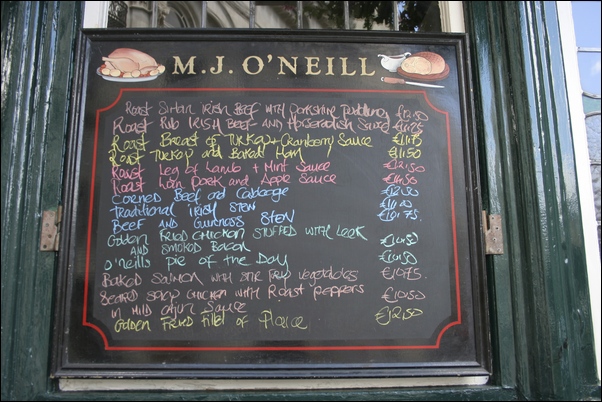 M.J. O'NEILL
Roast Sirloin Irish Beef with Yorkshire Pudding €12.50
Roast Rib IRISH Beef AND Horseradish Sauce €11.75
Roast Breast of Turkey + Cranberry Sauce €11.75
Roast Turkey and Baked Ham €11.50
Roast Leg of Lamb + Mint Sauce €12.50
Roast Loin Pork and Apple Sauce €11.50
Corned Beef and Cabbage €12.50
Traditional Irish Stew €11.00
Beef and Guinness Stew €10.75
Golden Fried CHICKEN STUFFED WITH LEEK €10.50
AND Smoked Bacon
O'Neills Pie of the Day €10.50
Baked Salmon with STIR Fry Vegetables €10.75
Seared Spicy Chicken with Roast Peppers €10.50
in Mild Cajun Sauce
Golden Fried Fillet of Plaice €12.50